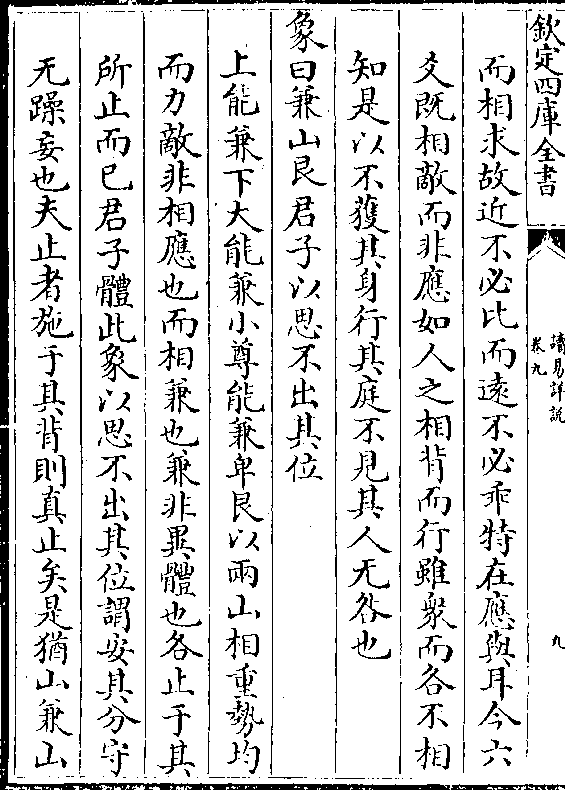 欽定四庫全書
讀易詳說
卷九
九
而相求故近不必比而遠不必乖特在應與耳今六
爻既相敵而非應如人之相背而行雖衆而各不相
知是以不獲其身行其庭不見其人无咎也
象曰兼山艮君子以思不出其位
上能兼下大能兼小尊能兼卑艮以兩山相重勢均
而力敵非相應也而相兼也兼非異體也各止于其
所止而已君子體此象以思不出其位謂安其分守
无躁妄也夫止者施于其背則真止矣是猶山兼山